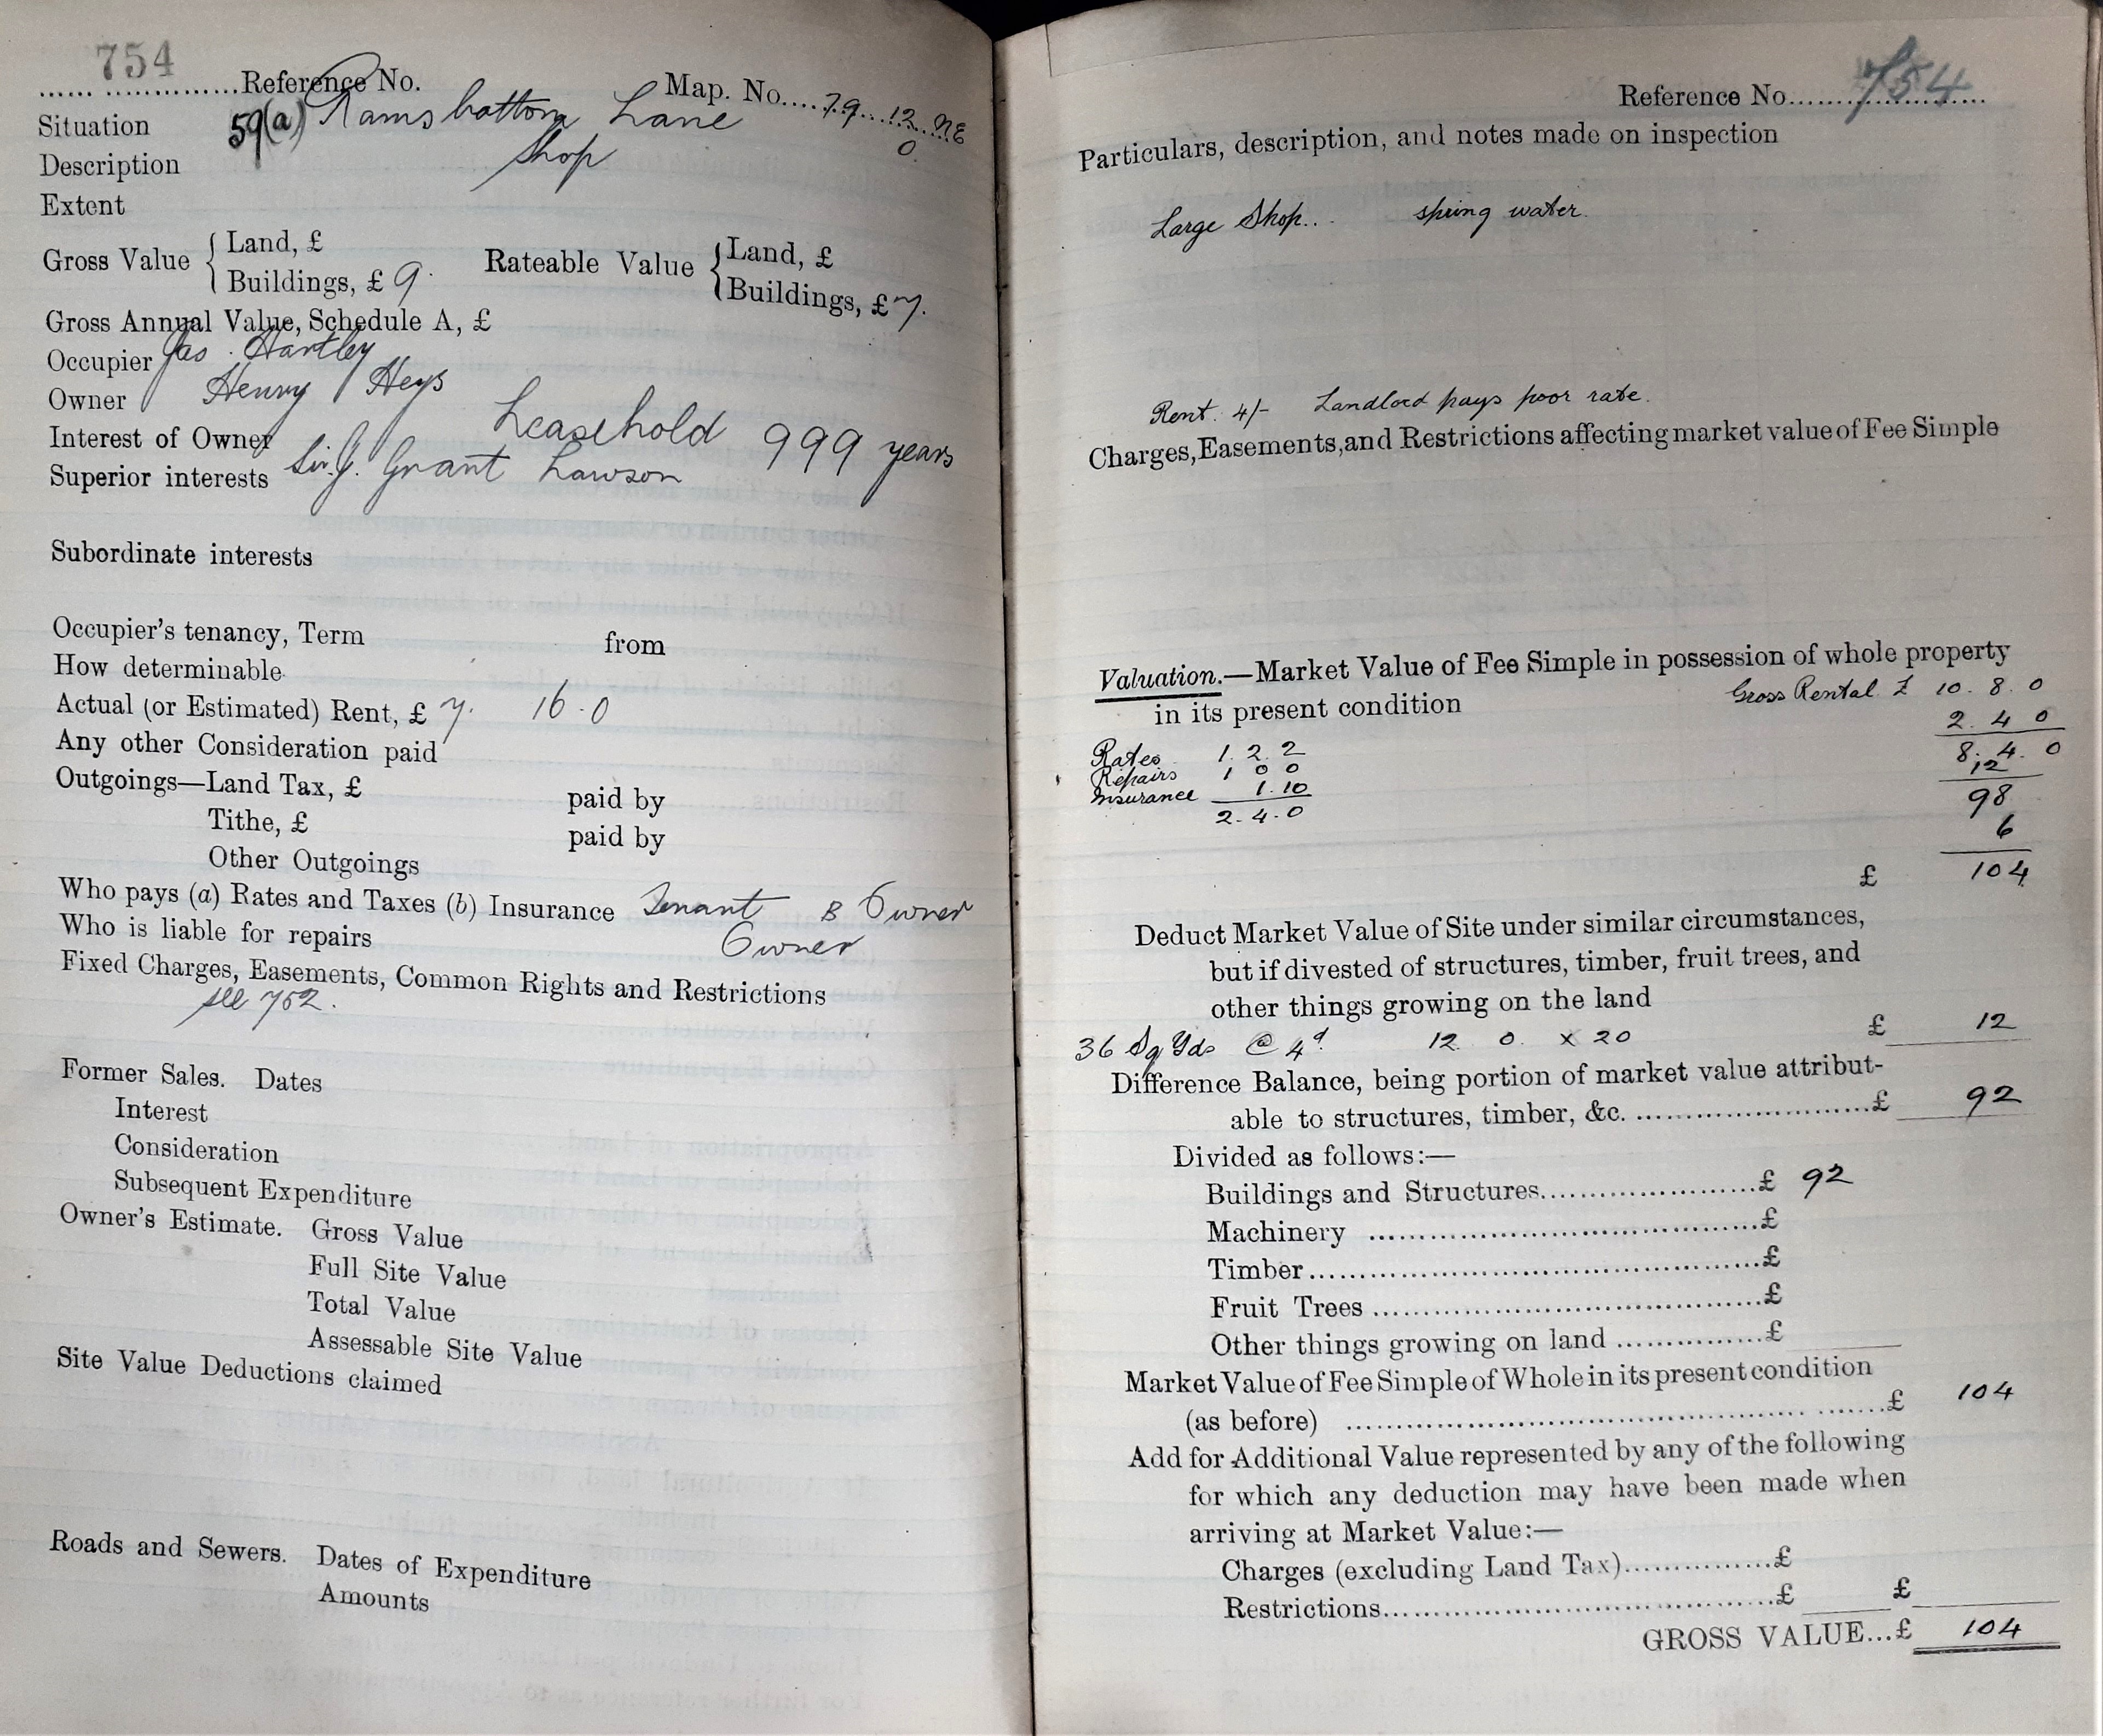 754
...... ..............Reference No. Map. No.... 79...12 NE
0.
Situation 59(a) Ramsbottom Lane
Description Shop
Extent
Gross Value { Land, £ Rateable Value { Land, £
Buildings, £ 9. Buildings, £ 7.
Gross Annual Value, Schedule A, £
Occupier Jas. Hartley
Owner Henry Heys
Interest of Owner Leasehold 999 years
Superior interests Sir J. Grant Lawson
Subordinate interests
Occupier's tenancy, Term from
How determinable
Actual (or Estimated) Rent, £ 7. 16 . 0
Any other Consideration paid
Outgoings—Land Tax, £ paid by
Tithe, £ paid by
Other Outgoings
Who pays (a) Rates and Taxes (b) Insurance Tenant B Owner
Who is liable for repairs Owner
Fixed Charges, Easements, Common Rights and Restrictions
see 752.
Former Sales. Dates
Interest
Consideration
Subsequent Expenditure
Owner's Estimate. Gross Value
Full Site Value
Total Value
Assessable Site Value
Site Value Deductions claimed
Roads and Sewers. Dates of Expenditure
Amounts
Reference No. 754
Particulars, description, and notes made on inspection
Large Shop.. spring water.
Rent. 4/- Landlord pays poor rate.
Charges, Easements, and Restrictions affecting market value of Fee Simple
Valuation.—Market Value of Fee Simple in possession of whole property
in its present condition Gross Rental £ 10. 8. 0
2. 4 0
Rates 1. 2. 2 8. 4. 0
Repairs 1 0 0 12
Insurance 1. 10 98
2. 4. 0 6
£ 104
Deduct Market Value of Site under similar circumstances,
but if divested of structures, timber, fruit trees, and
other things growing on the land
36 Sq Yds @ 4d. 12 0. x 20 £ 12
Difference Balance, being portion of market value attribut-
able to structures, timber, &c. ........................£ 92
Divided as follows:—
Buildings and Structures......................£ 92
Machinery ........................................£
Timber.............................................£
Fruit Trees .......................................£
Other things growing on land ...............£
Market Value of Fee Simple of Whole in its present condition
(as before) ......................................................£ 104
Add for Additional Value represented by any of the following
for which any deduction may have been made when
arriving at Market Value:—
Charges (excluding Land Tax)...............£
Restrictions.......................................£ £
GROSS VALUE...£ 104